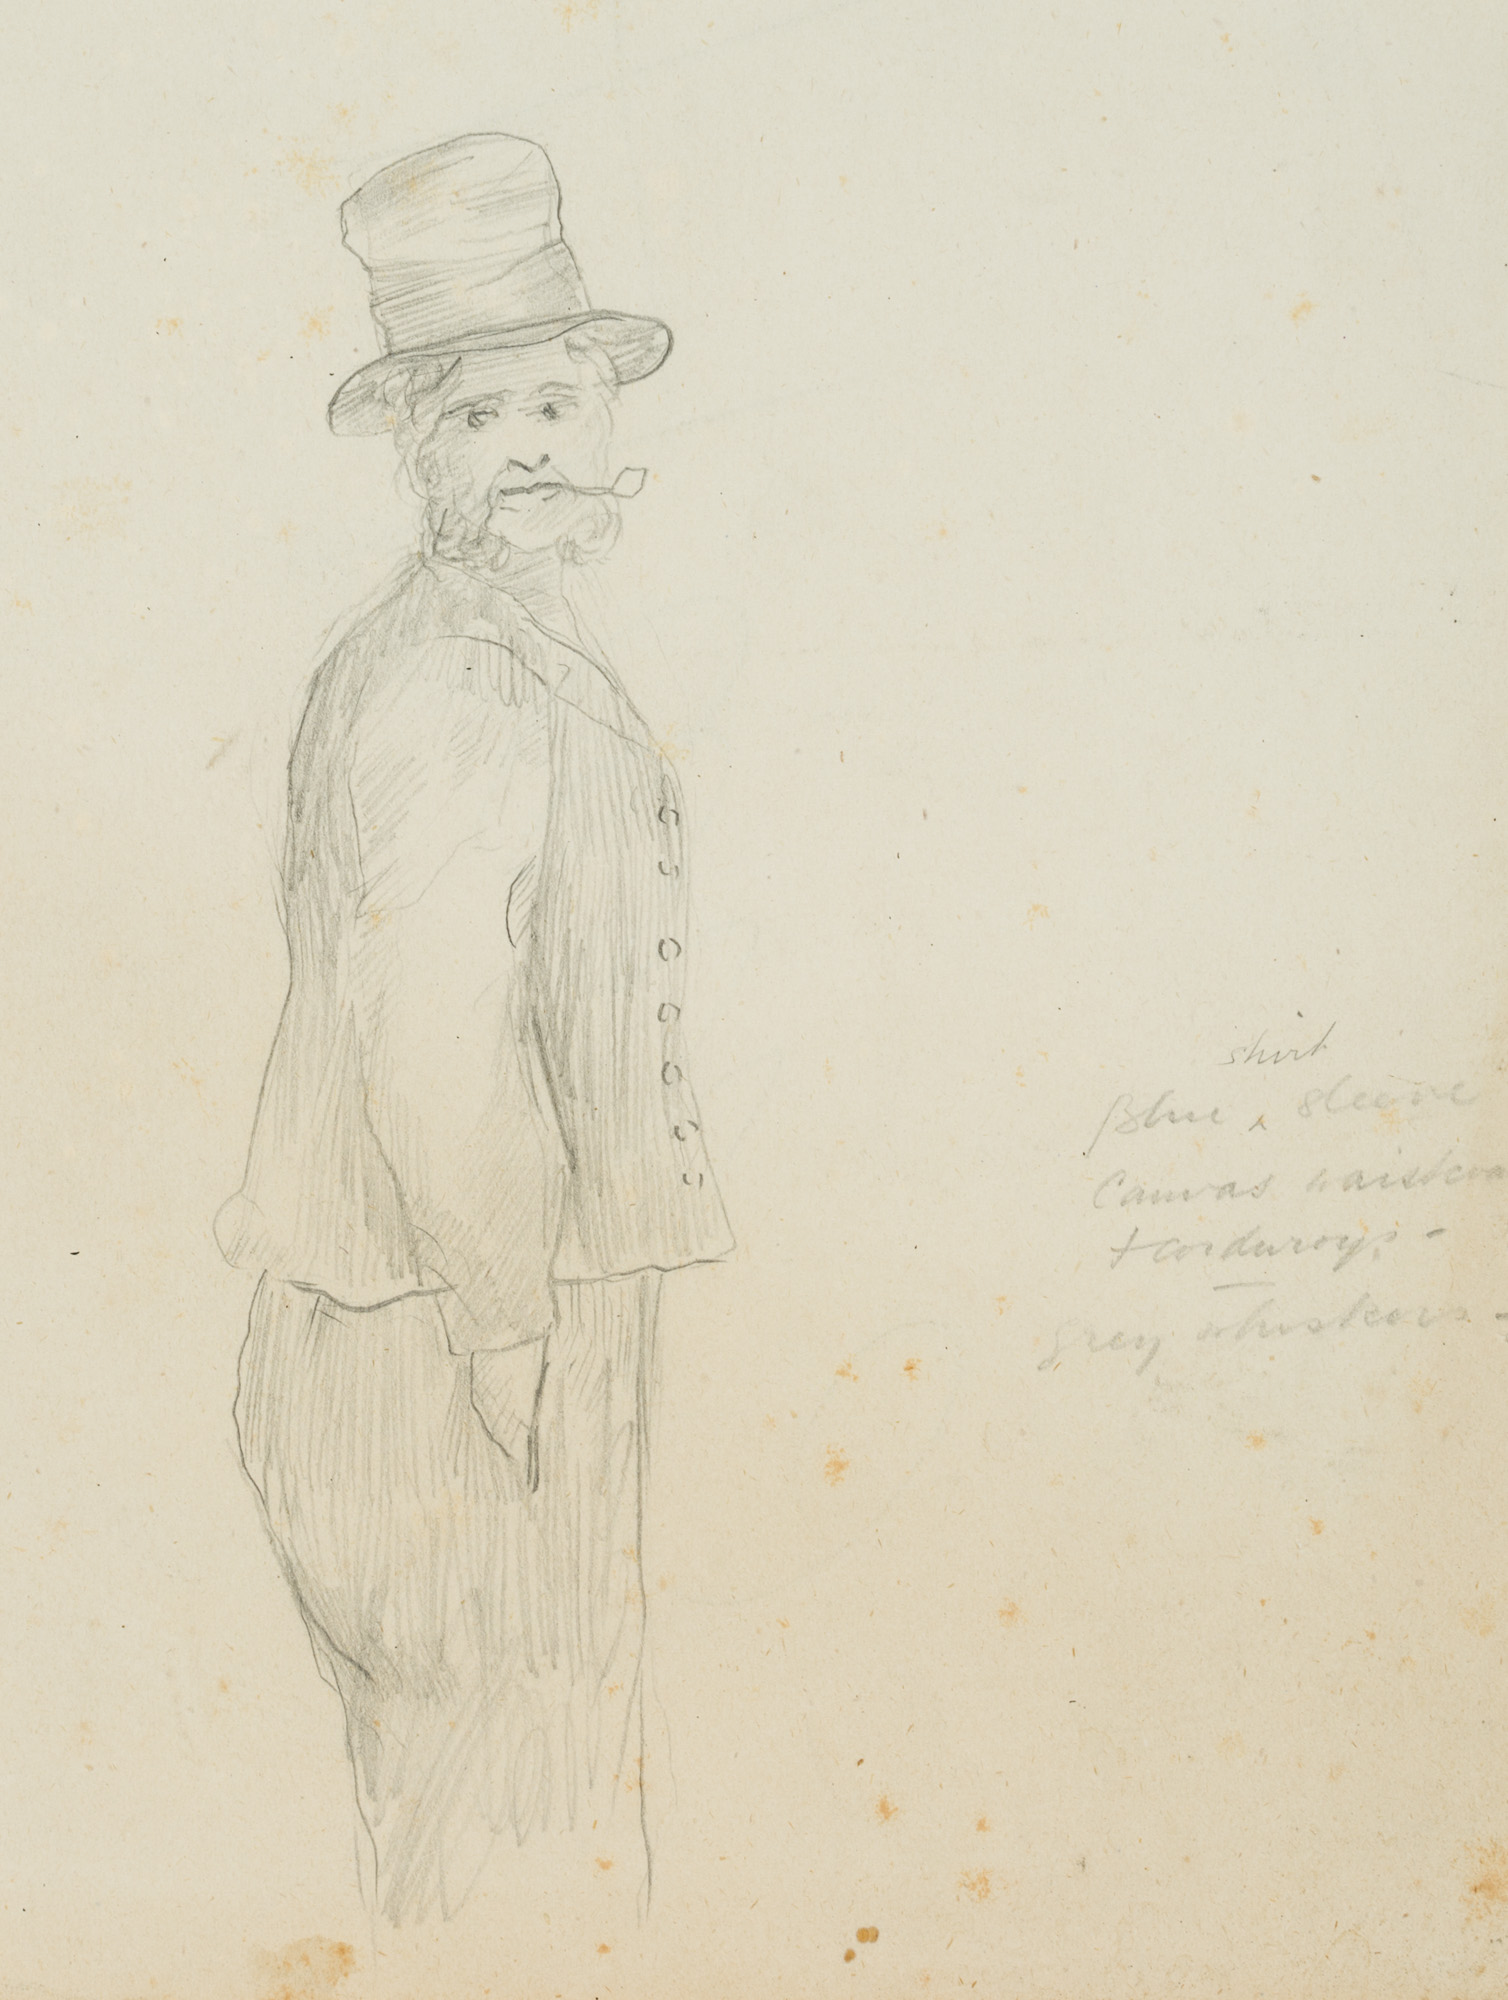 shirt
Blue ^ sleeve
Canvas waistcoa
+ corduroys -
grey whiskers -